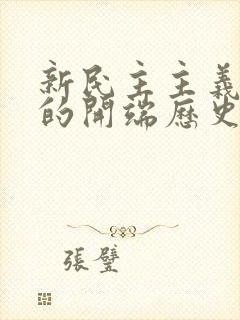 新民主主義
的開端歷史
張璧